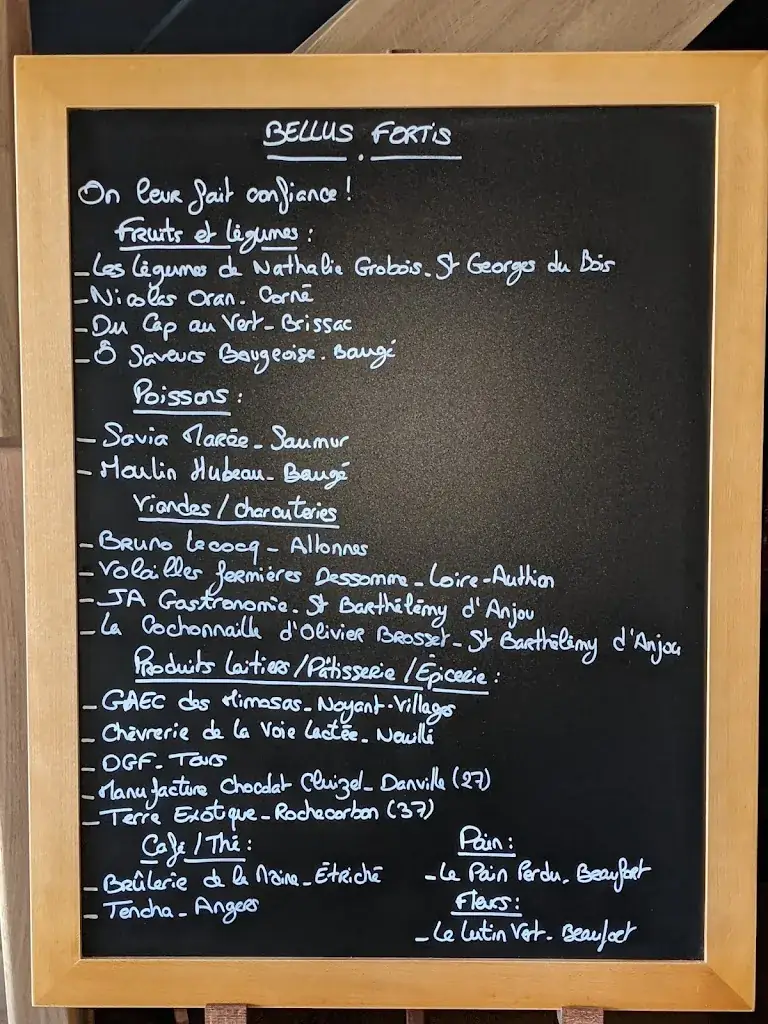 BELLUS FORTIS
On leur fait confiance !
Fruits et légumes :
- Les légumes de Nathalie Grobois. St Georges du Bois
- Nicolas Oran. Corné
- Du Cap au Vert - Brissac
- Ô Saveurs Baugeoise. Baugé
Poissons :
- Savia Marée - Saumur
- Moulin Hubeau - Baugé
Viandes / charcuteries
- Bruno Lecocq - Allonnes
- Volailles fermières Dessomme - Loire-Authion
- JA Gastronomie. St Barthélémy d'Anjou
- La Cochonnaille d'Olivier Brosset - St Barthélémy d'Anjou
Produits laitiers / Pâtisserie / Épicerie :
- GAEC des Mimosas - Noyant-Villages
- Chèvrerie de la Voie Lactée - Neuillé
- DGF - Tours
- Manufacture Chocolat Cluizel - Danville (27)
- Terre Exotique - Rochecorbon (37)
Café / Thé :
- Brûlerie de la Maine - Étriché
- Tencha - Angers
Pain :
- Le Pain Perdu. Beaufort
Fleurs :
- Le Lutin Vert - Beaufort